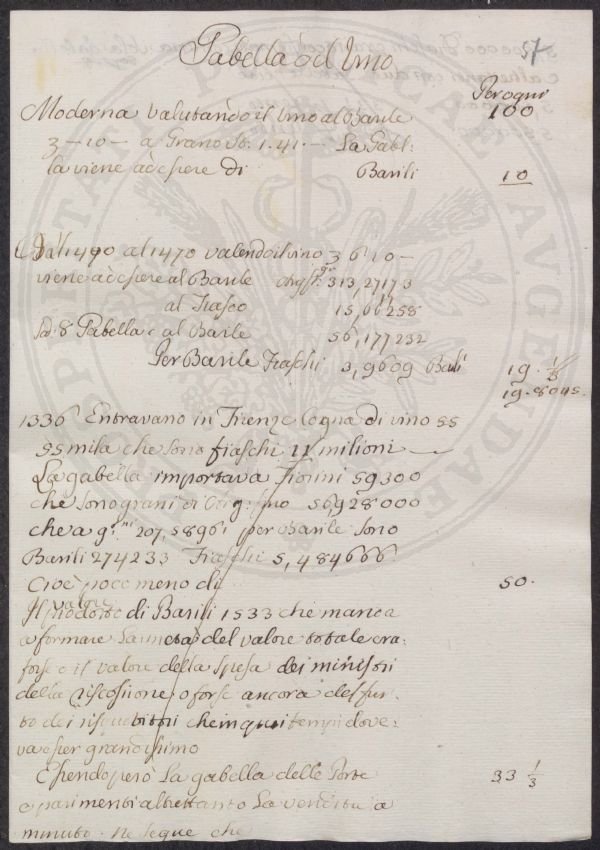 57
Gabella del Vino
Per ogni
Moderna valutando il vino al Barile 100
3-10- a Grano So: 1.41.- La Gabl:
la viene ad esere di Barili 10
Dal 1490 al 1470 valendo il vino 3 6 10-
viene ad esere al Barile 313,27173
al Fiasco 15,66258
8 Gabella e al Barile 56,177232
Per Barile Fiaschi 3,9609 Barili 19.⅓
19.8045.
1336 Entravano in Firenze Cogna di vino 55
55 mila che sono fiaschi 11 milioni
La gabella importava Fiorini 59300
che sono grani di 56928000
che a gni 207,5896 per Barile sono
Barili 274233 Fiaschi 5,484666
Cioè poco meno di 50.
valore
Il prodotto di Barili 1533 che manca
a formare la metà del valore totale era
forse o il valore della spesa dei ministri
della riscossione, o forse ancora del fur:
to dei che in quei tempi dove:
va esser grandissimo
Esendo però La gabella delle Porte 33 ⅓
e parimenti altrettanto La vendita a
minuto. Ne segue che